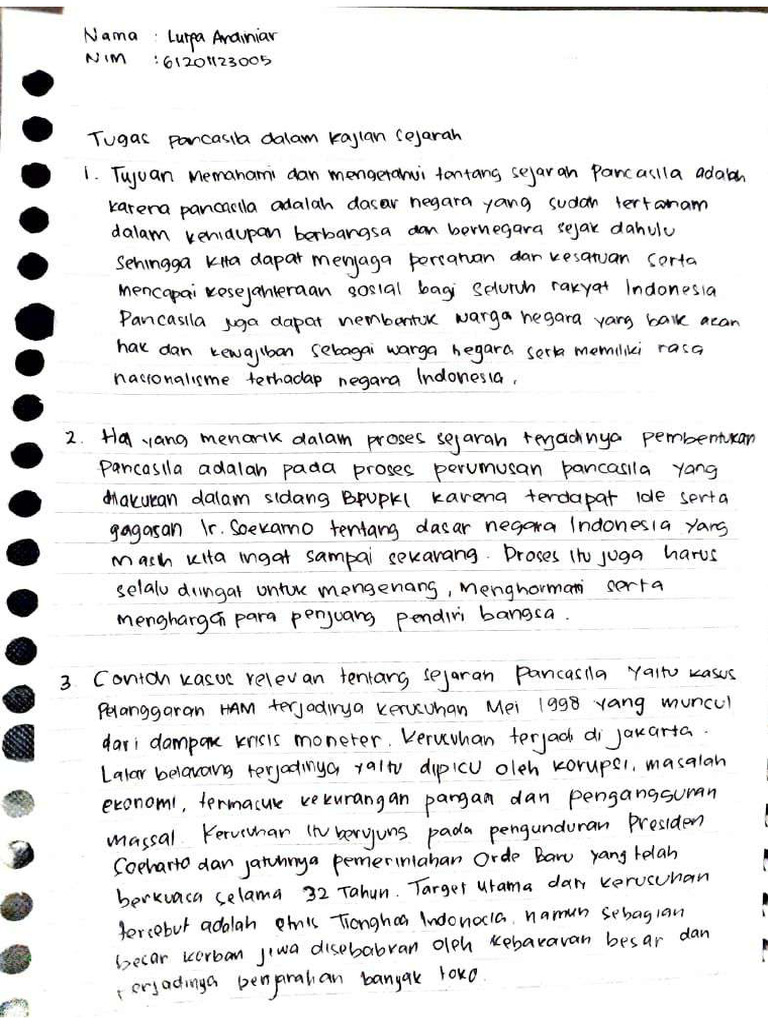 Nama : Lutfa Ardiniar
NIM : 61201123005
Tugas Pancasila dalam kajian sejarah
1. Tujuan memahami dan mengetahui tentang sejarah Pancasila adalah
karena pancasila adalah dasar negara yang sudah tertanam
dalam kehidupan berbangsa dan bernegara sejak dahulu
sehingga kita dapat menjaga persatuan dan kesatuan serta
mencapai kesejahteraan sosial bagi seluruh rakyat Indonesia
Pancasila juga dapat membentuk warga negara yang baik akan
hak dan kewajiban sebagai warga negara serta memiliki rasa
nasionalisme terhadap negara Indonesia.
2. Hal yang menarik dalam proses sejarah terjadinya pembentukan
Pancasila adalah pada proses perumusan pancasila yang
dilakukan dalam sidang BPUPKI karena terdapat ide serta
gagasan Ir. Soekarno tentang dasar negara Indonesia yang
masih kita ingat sampai sekarang. Proses itu juga harus
selalu diingat untuk mengenang, menghormati serta
menghargai para penjuang pendiri bangsa.
3. Contoh kasus relevan tentang sejarah Pancasila yaitu kasus
Pelanggaran HAM terjadinya kerusuhan Mei 1998 yang muncul
dari dampak krisis moneter. Kerusuhan terjadi di Jakarta.
Latar belakang terjadinya yaitu dipicu oleh korupsi, masalah
ekonomi, termasuk kekurangan pangan dan pengangguran
massal. Kerusuhan itu berujung pada pengunduran Presiden
Soeharto dan jatuhnya pemerintahan Orde Baru yang telah
berkuasa selama 32 Tahun. Target utama dari kerusuhan
tersebut adalah etnis Tionghoa Indonesia, namun sebagian
besar korban jiwa disebabkan oleh kebakaran besar dan
terjadinya penjarahan banyak toko.